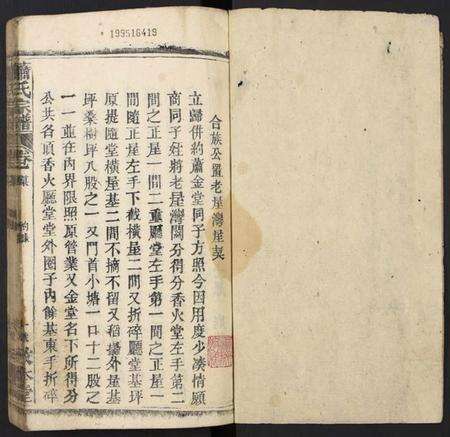 199516419
合族公置老屋灣屋契
立歸併約蕭金堂同子方照今因用度少湊情願
商同子姪將老屋灣鬮分得分香火堂左手第二
間之正屋一間二重廳堂左手第一間之正屋一
間隨正屋左手下截橫屋二間又折碎廳堂基坪
原提隨堂橫屋基二間不摘不留又稻塲外屋基
坪桑樹坪八股之一又門首小塘一口十二股之
一一並在內界限照原管業又金堂名下所得分
公共各項香火廳堂堂外圈子內餘基東手折碎
蕭氏宗譜